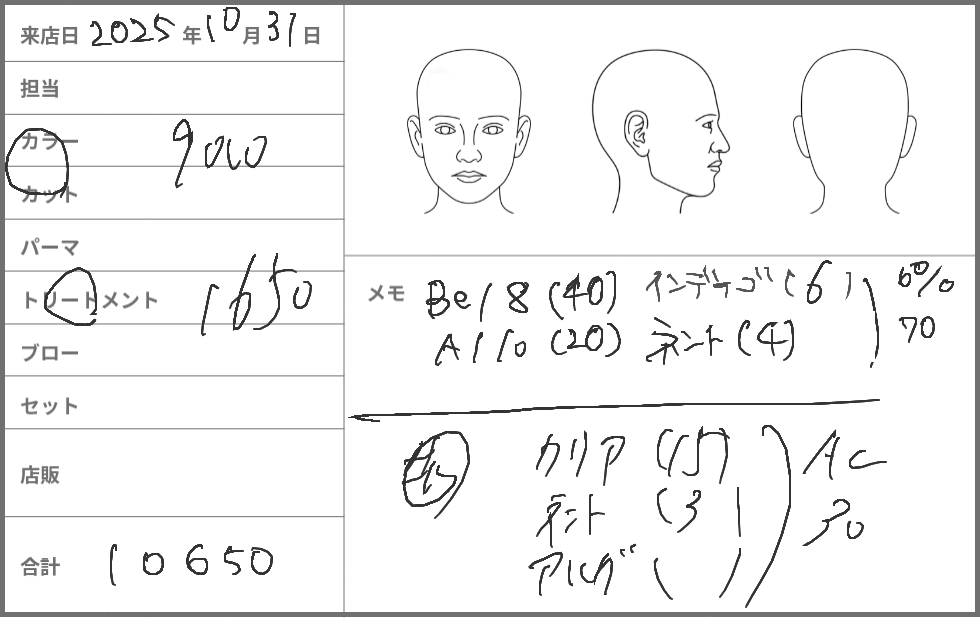 来店日 2025 年 10 月 31 日
担当
カラー 9000
カット
パーマ
トリートメント 1650
ブロー
セット
店販
合計 10650
メモ Be/8 (40) インディゴ (6) 6%
A/10 (20) ミント (4) 70
クリア (15) Ac
ミント (3) 30
( )